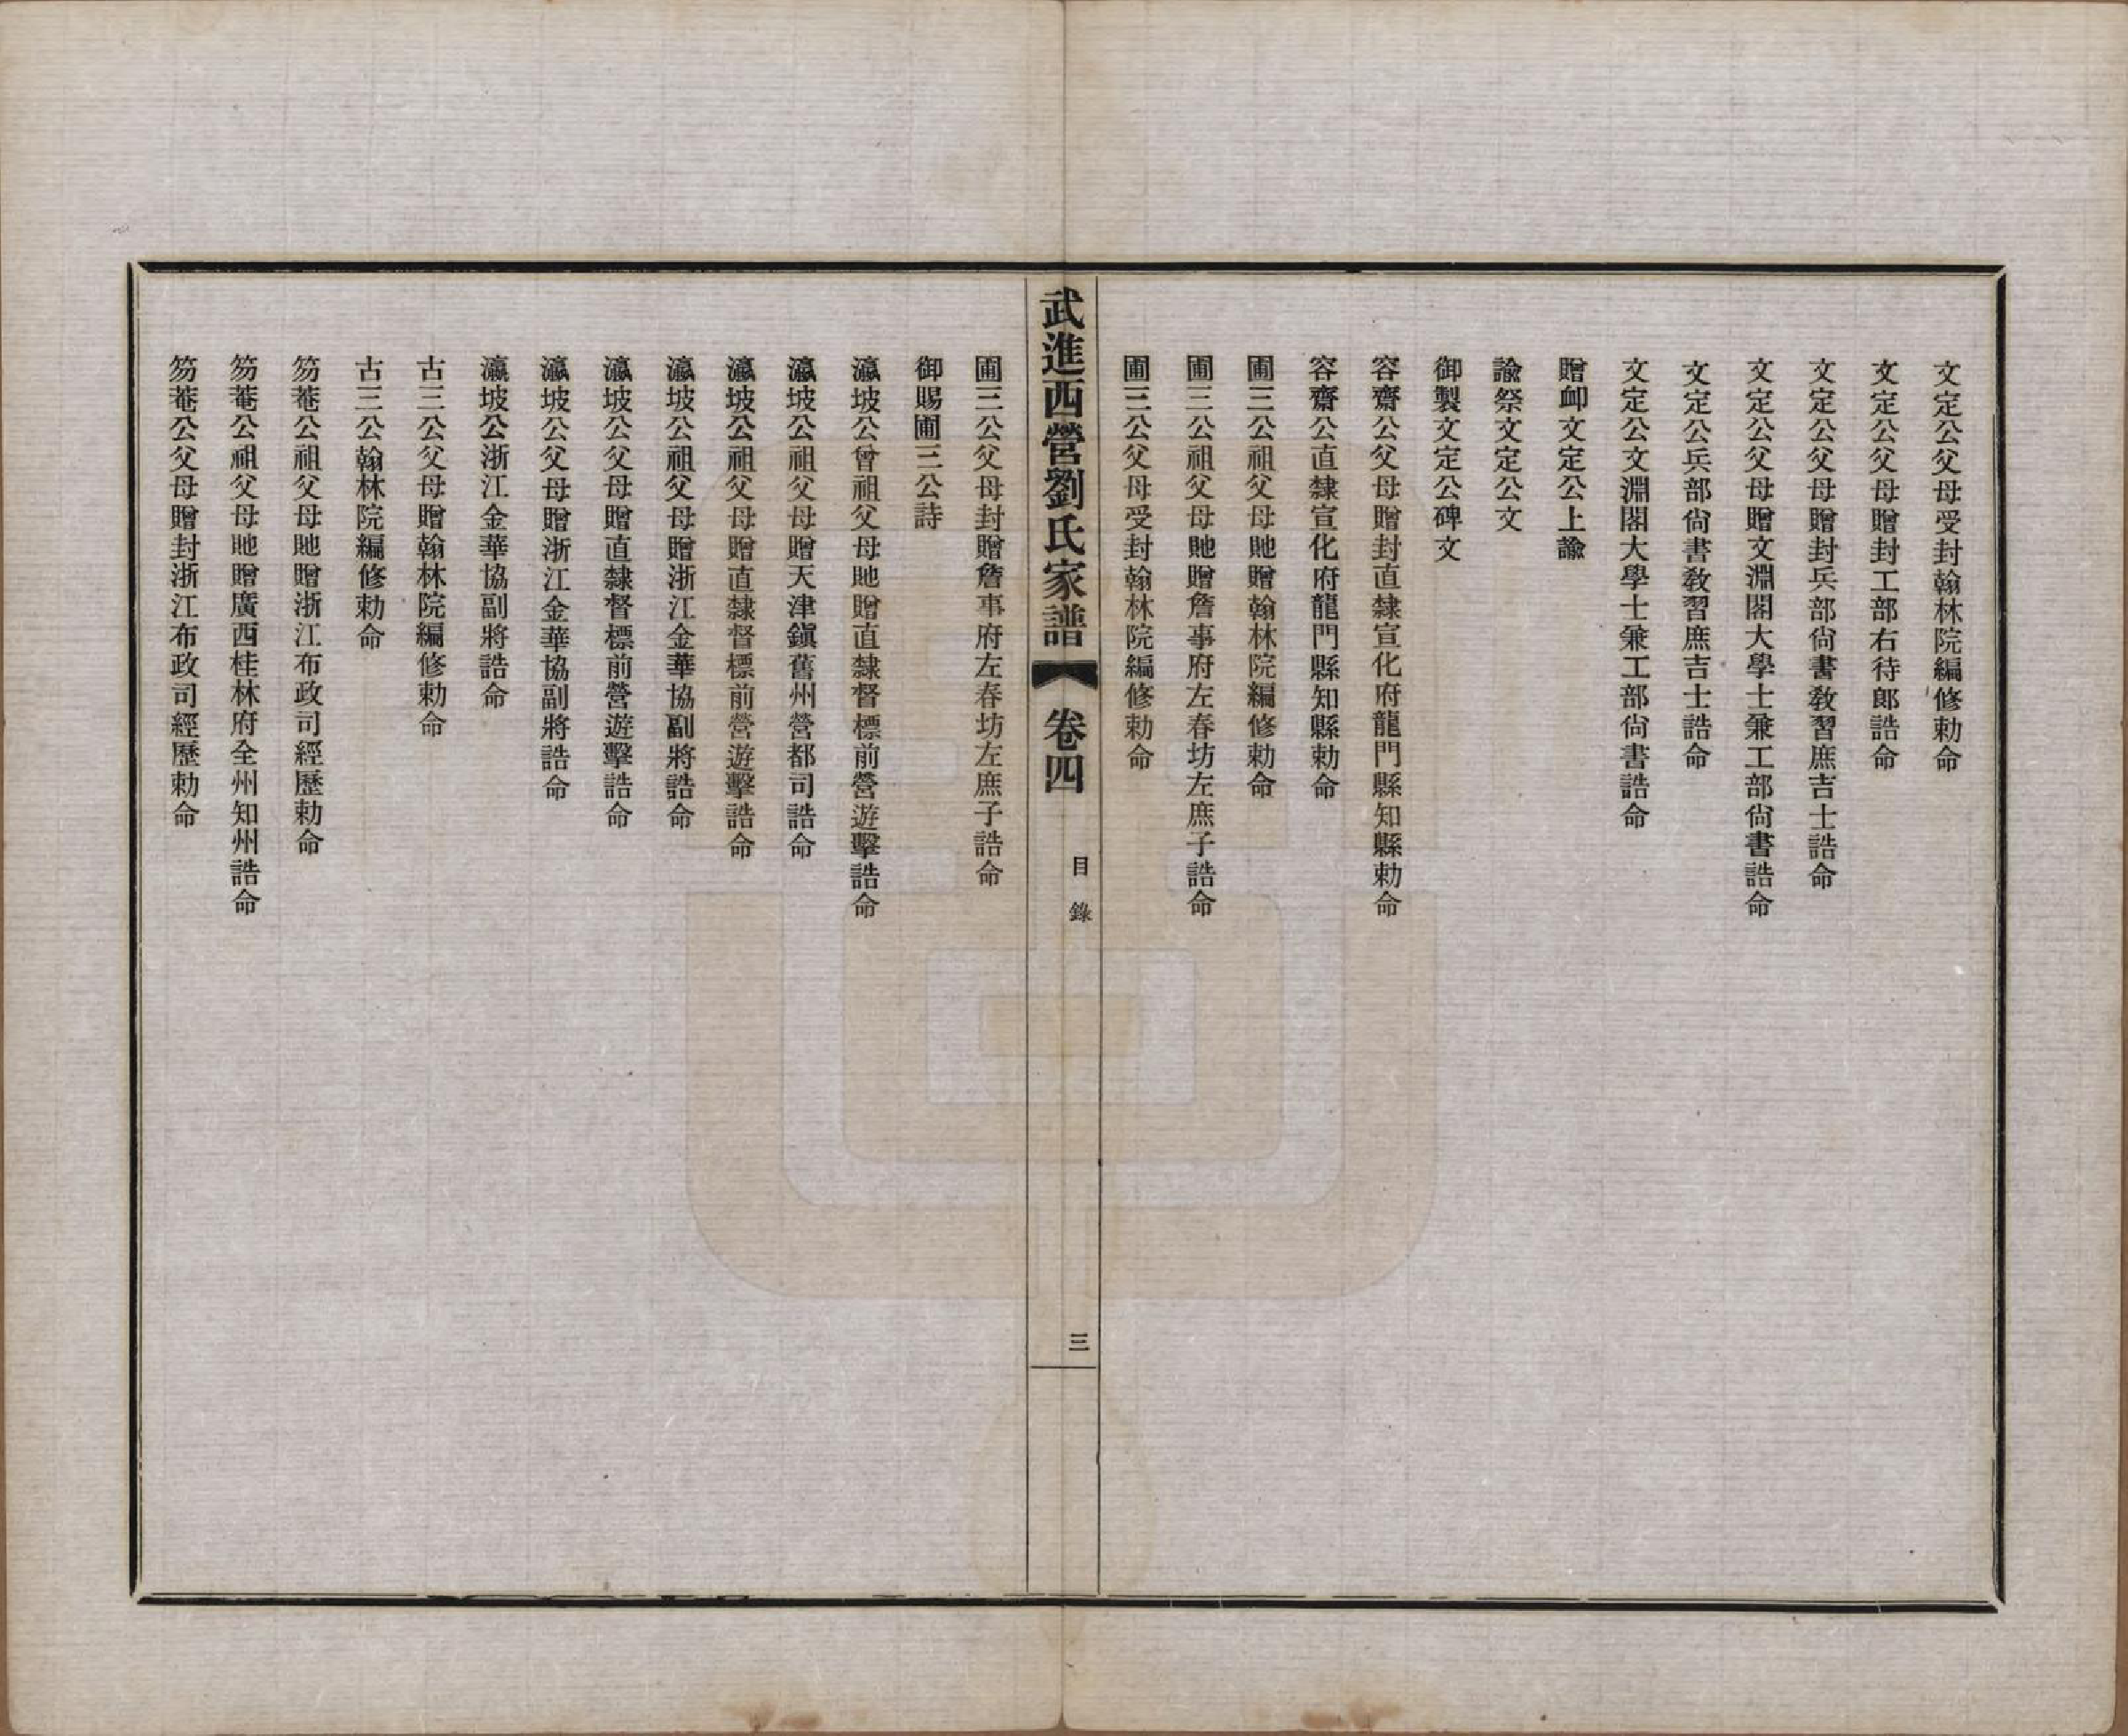 文定公父母受封翰林院編修勅命
文定公父母贈封工部右待郎誥命
文定公父母贈封兵部尙書敎習庶吉士誥命
文定公父母贈文淵閣大學士兼工部尙書誥命
文定公兵部尙書敎習庶吉士誥命
文定公文淵閣大學士兼工部尙書誥命
贈卹文定公上諭
諭祭文定公文
御製文定公碑文
容齋公父母贈封直隸宣化府龍門縣知縣勅命
容齋公直隸宣化府龍門縣知縣勅命
圃三公祖父母貤贈翰林院編修勅命
圃三公祖父母貤贈詹事府左春坊左庶子誥命
圃三公父母受封翰林院編修勅命
武進西營劉氏家譜
卷四
目錄
三
圃三公父母封贈詹事府左春坊左庶子誥命
御賜圃三公詩
瀛坡公曾祖父母貤贈直隸督標前營遊擊誥命
瀛坡公祖父母贈天津鎭舊州營都司誥命
瀛坡公祖父母贈直隸督標前營遊擊誥命
瀛坡公祖父母贈浙江金華協副將誥命
瀛坡公父母贈直隸督標前營遊擊誥命
瀛坡公父母贈浙江金華協副將誥命
瀛坡公浙江金華協副將誥命
古三公父母贈翰林院編修勅命
古三公翰林院編修勅命
笏菴公祖父母貤贈浙江布政司經歷勅命
笏菴公祖父母貤贈廣西桂林府全州知州誥命
笏菴公父母贈封浙江布政司經歷勅命